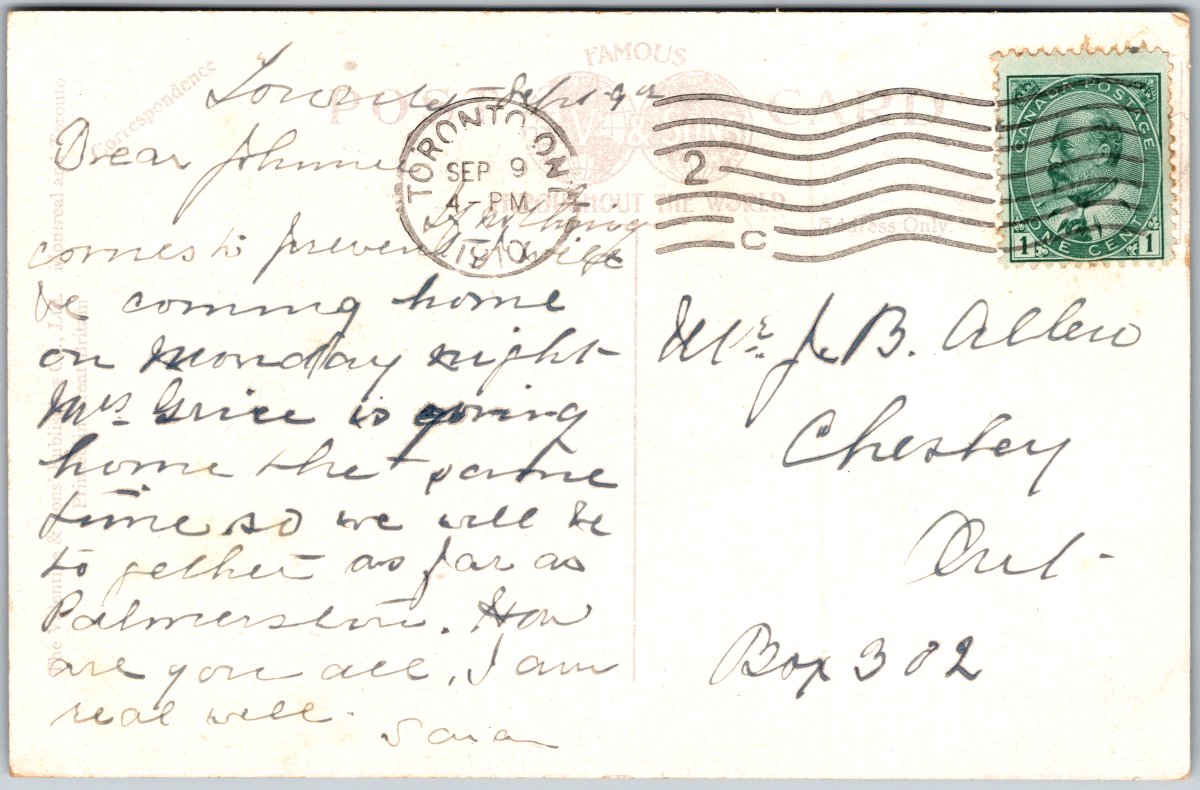 Toronto Sept 9th
Dear Johnnie
If nothing
comes to prevent I will
be coming home
on Monday night
Mrs Grice is going
home the same
time so we will be
to gether as far as
Palmerston. How
are you all. I am
real well.
Sara
Mr. J. B. Allen
Chesley
Ont-
Box 302
TORONTO, ONT.
SEP 9
4-PM
1910
2
C
CANADA POSTAGE
1 ONE CENT 1
FAMOUS
POST CARD
THROUGHOUT THE WORLD
Correspondence
Address Only.
Montreal and Toronto